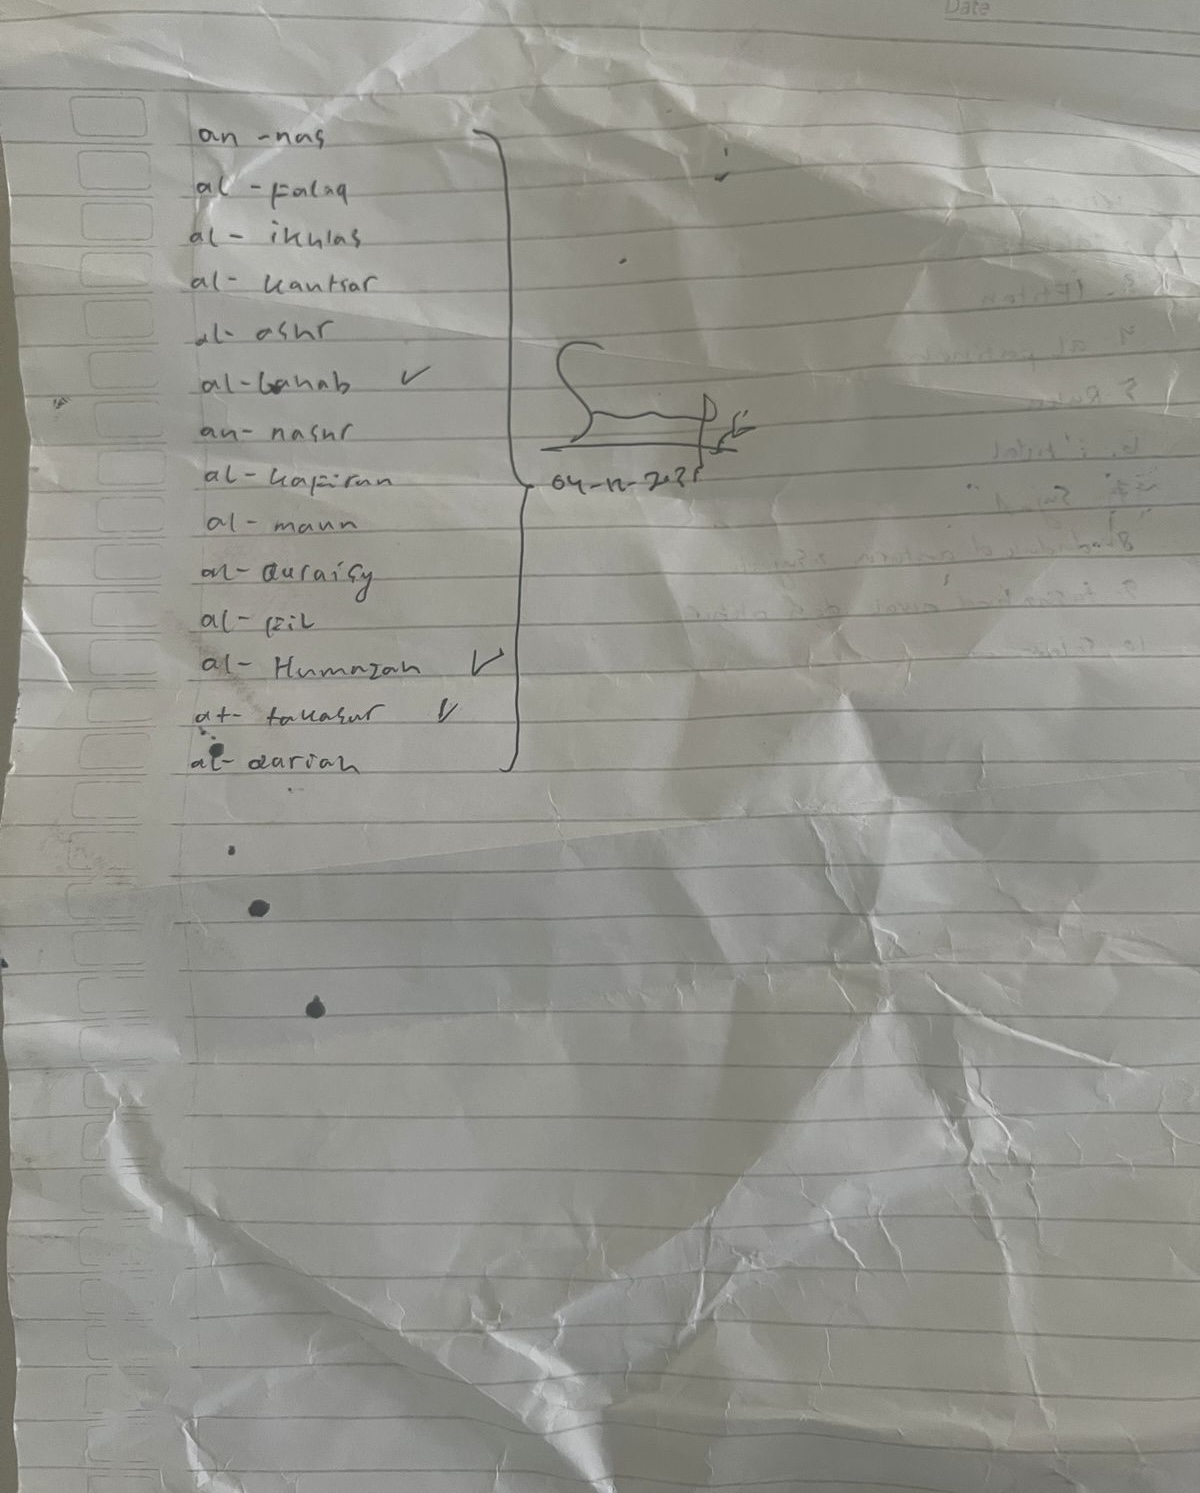 Date
an -nas
al - Falaq
al - ikhlas
al - kautsar
al- ashr
al-Lahab ✓
an- nashr
al-kafirun
al- maun
al- Quraisy
al- fiil
al- Humazah ✓
at- takasur ✓
al- Qariah
04-12-2025